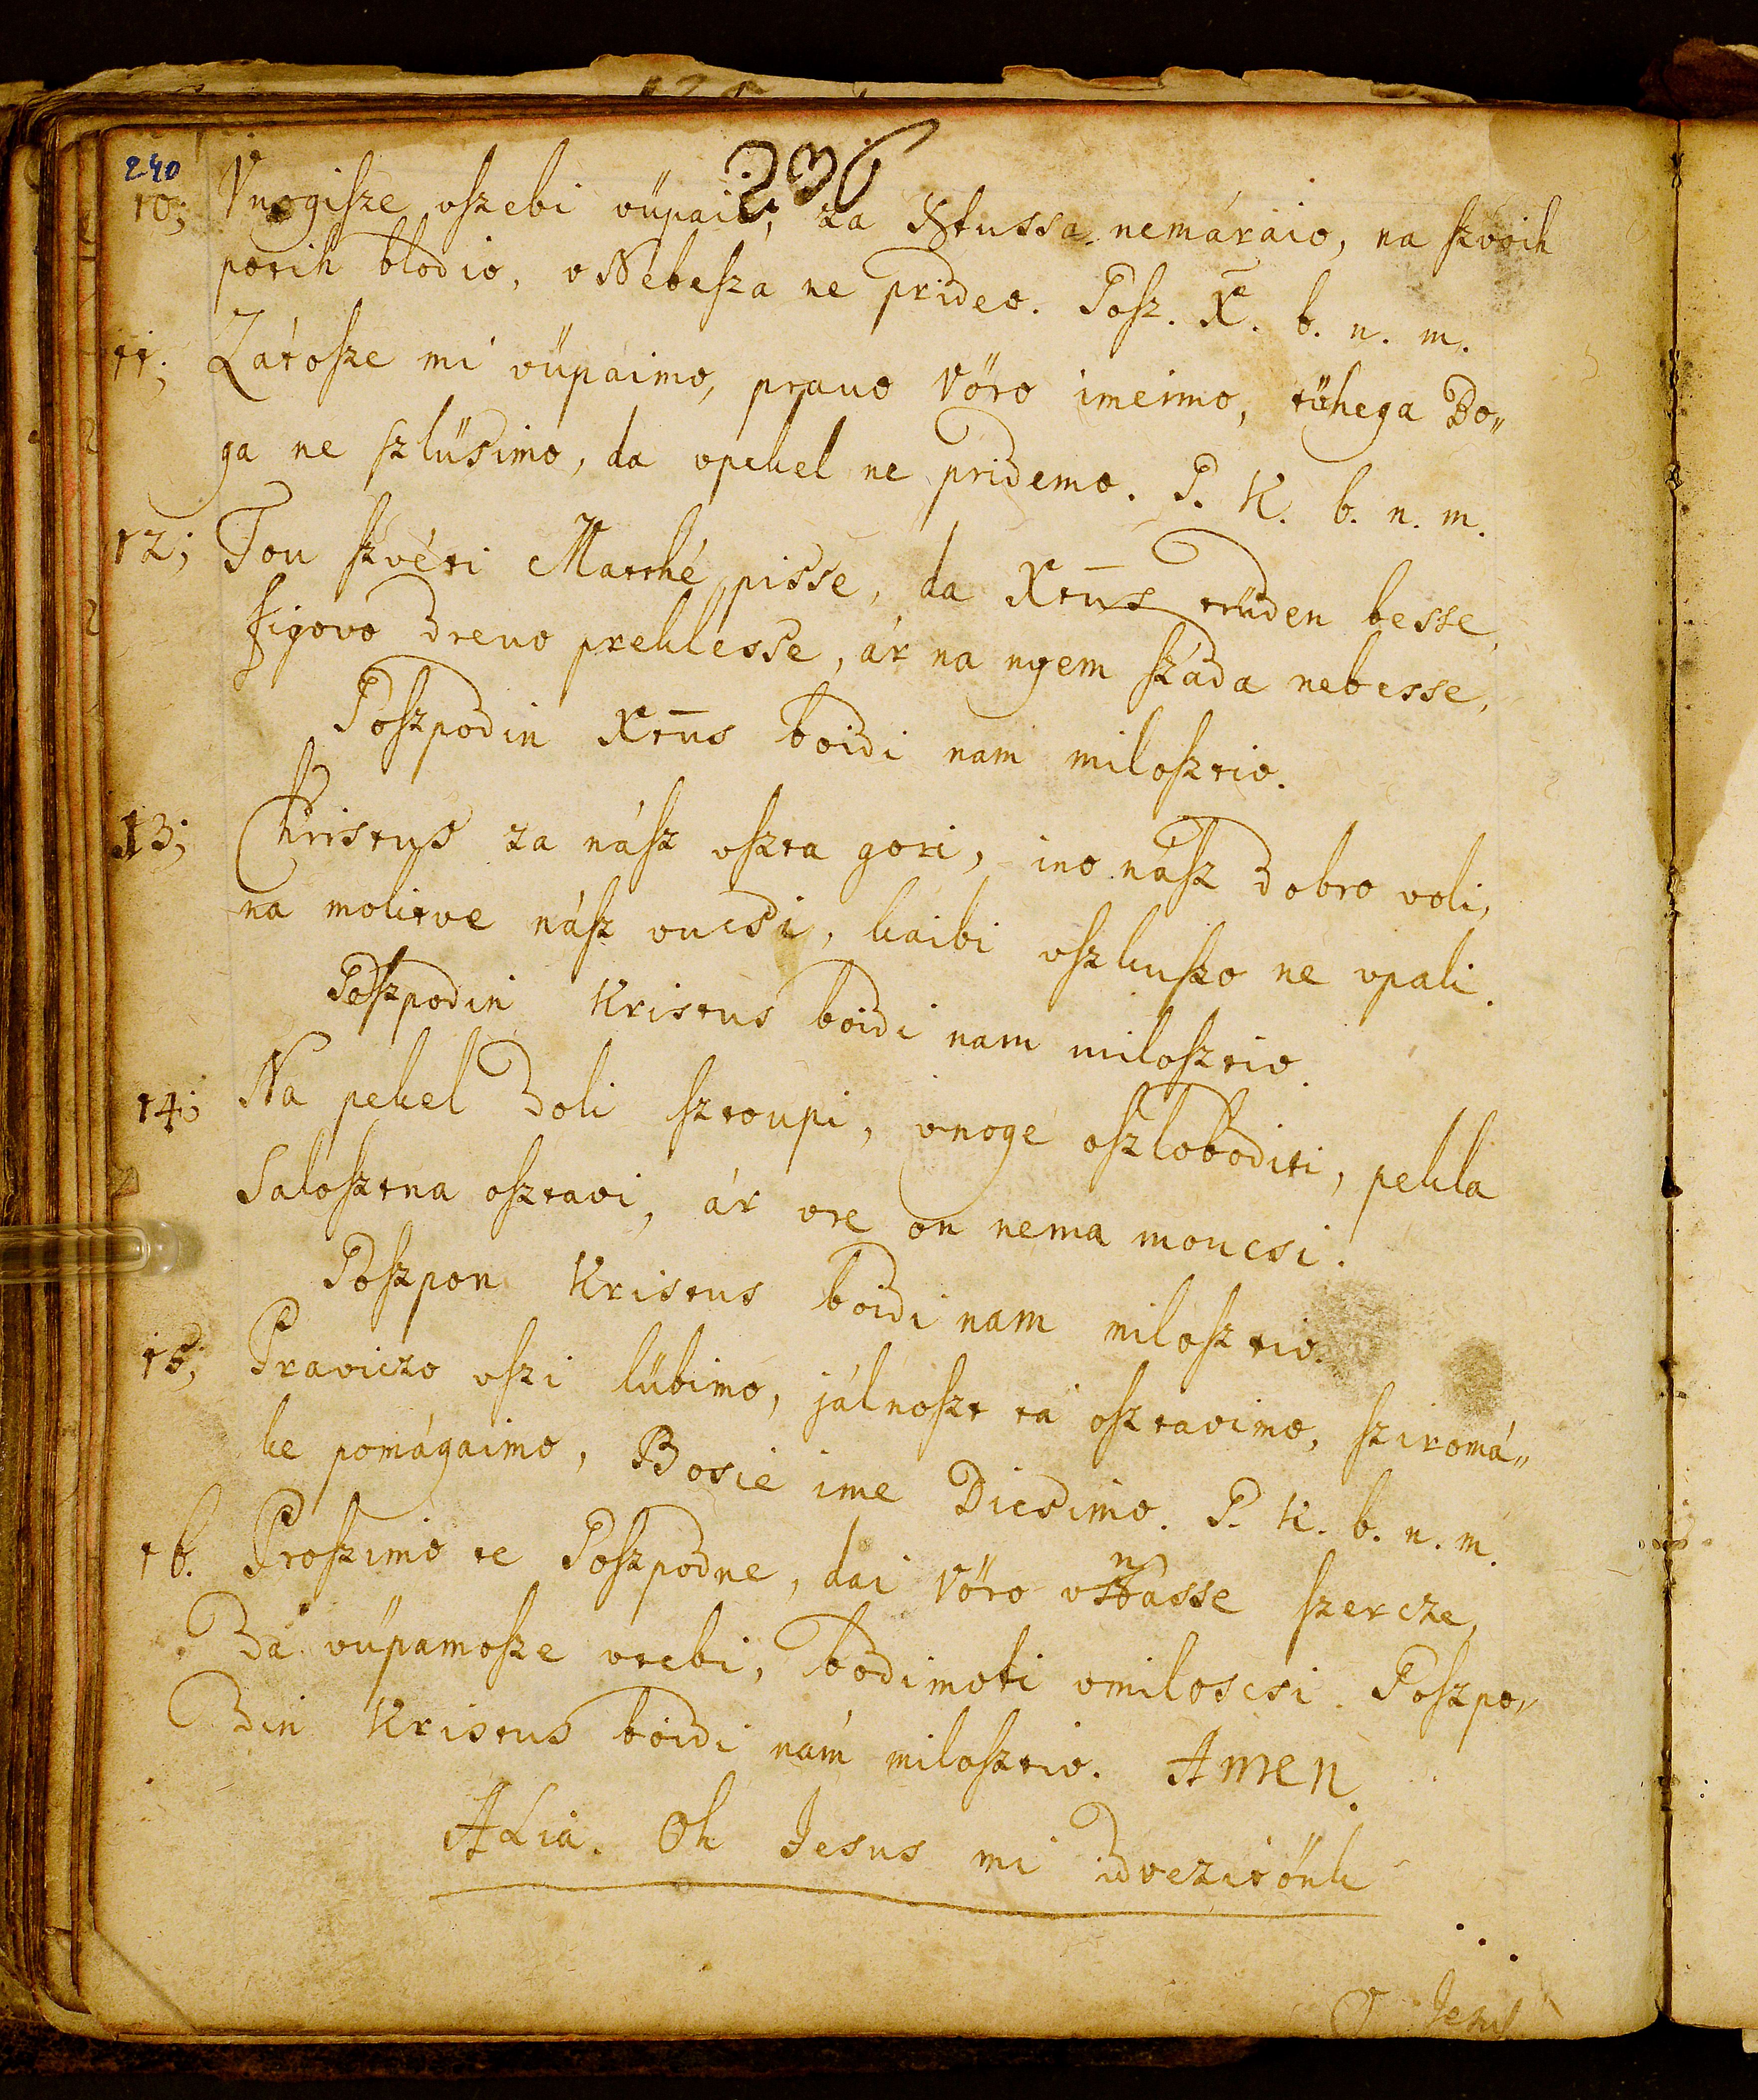 240
236
10; Vnogiſze vſzebi vüpaio, za Xſtussa nemáraio, na ſzvoih
potih blodio, v Nebeſza ne prideo. Goſz. X. b. n. m.
11; Zátoſze mi vüpáimo, pravo Vöro imeimo, tühega Bo„
ga ne ſzlüsimo, da vpekel ne pridemo. G. K. b. n. m.
12; Tou ſzvéti Matthé pisse, da Xtūs trüden besse,
figovo drevo preklesse, ár na nyem ſzáda nebesse,
Goſzpodin Xtūs boidi nam miloſztiv.
13; Christus za náſz vſzta gori, ino náſz dobro voli,
na molitve náſz vucsi, kaibi vſzkuſzo ne vpali.
Goſzpodin Kristus boidi nam miloſztiv.
14; Na pekel doli ſztoupi, vnogé oſzloboditi, pekla
saloſztna oſztavi, ár vre on nema moucsi.
Goſzpon Kristus boidi nam miloſztiv.
15; Praviczo vſzi lübimo, jálnoſzt tá oſztavimo, ſziromá„
ke pomágaimo, Bosie ime Dicsimo. G. K. b. n. m.
16. Proſzimo te Goſzpodne, dai Vöro v násse ſzercze,
Da vüpamoſze vtebi, bodimoti vmiloscsi. Goſzpo„
din Kristus boidi nám miloſztiv. Amen.
ALia. Oh Jesus mi
O Jesus